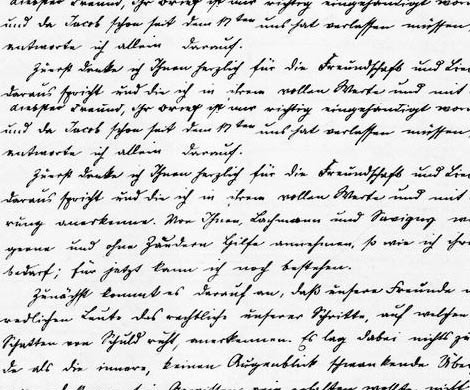 Liebster Freund, Ihr Brief ist mir richtig eingehändigt wor
und da Jacob schon seit dem 17ten uns hat verlassen müssen,
antworte ich allein darauf.
Zuerst danke ich Ihnen herzlich für die Freundschaft und Lie
daraus spricht und die ich in ihrem vollen Werte und mit
Liebster Freund, Ihr Brief ist mir richtig eingehändigt wor
und da Jacob schon seit dem 17ten uns hat verlassen müssen,
antworte ich allein darauf.
Zuerst danke ich Ihnen herzlich für die Freundschaft und Lie
daraus spricht und die ich in ihrem vollen Werte und mit
rung anerkenne. Von Ihnen, Lachmann und Savigny w
gerne und ohne Zaudern Hilfe annehmen, so wie ich ihr
bedarf; für jetzt kann ich noch bestehen.
Zunächst kommt es darauf an, daß unsere Freunde
redlichen Leute das rechtliche unserer Schritte, auf welchen
Schatten von Schuld ruht, anerkennen. Es lag dabei nichts z
de als die innere, keinen Augenblick schwankende Über